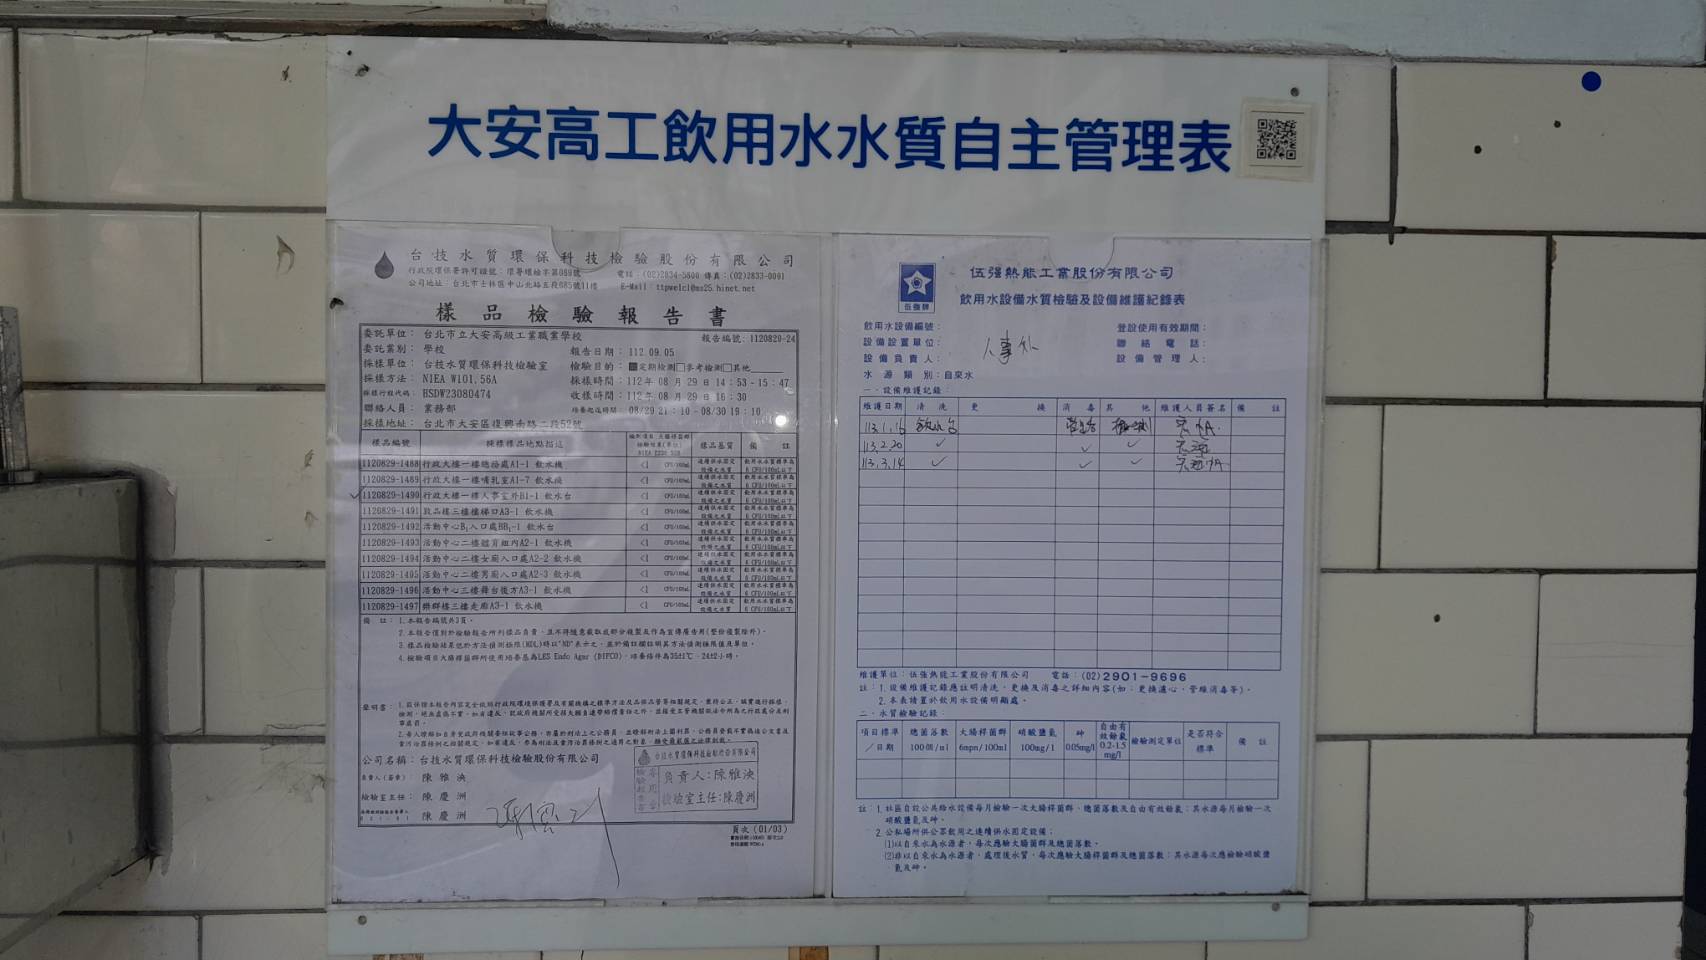 大安高工飲用水水質自主管理表
台技水質環保科技檢驗股份有限公司
行政院環保署許可證號：環署環檢字第089號
電話：(02)2834-5600 傳真：(02)2833-0091
公司地址：台北市士林區中山北路五段685號11樓
E-Mail：ttpwelcl@ms25.hinet.net
樣品檢驗報告書
委託單位：台北市立大安高級工業職業學校
報告編號：1120829-24
委託業別：學校
報告日期：112.09.05
採樣單位：台技水質環保科技檢驗室
檢驗目的：■定期檢測□參考檢測□其他
採樣方法：NIEA W101.56A
採樣時間：112年 08月 29日 14：53-15：47
採樣行程代碼：HSDW23080474
收樣時間：112年 08月 29日 16：30
聯絡人員：業務部
培養起迄時間：08/29 21：10-08/30 19：10
採樣地址：台北市大安區復興南路二段52號
樣品編號 採樣樣品地點描述 樣品基質 備註
1120829-1488 行政大樓一樓總務處A1-1 飲水機 <1 CFU/100mL
1120829-1489 行政大樓一樓哺乳室A1-7 飲水機 <1 CFU/100mL
✓ 1120829-1490 行政大樓一樓人事室外B1-1 飲水台 <1 CFU/100mL
1120829-1491 敦品樓三樓樓梯口A3-1 飲水機 <1 CFU/100mL
1120829-1492 活動中心B1入口處BB1-1 飲水台 <1 CFU/100mL
1120829-1493 活動中心二樓體育組內A2-1 飲水機 <1 CFU/100mL
1120829-1494 活動中心二樓女廁入口處A2-2 飲水機 <1 CFU/100mL
1120829-1495 活動中心二樓男廁入口處A2-3 飲水機 <1 CFU/100mL
1120829-1496 活動中心三樓舞台後方A3-1 飲水機 <1 CFU/100mL
1120829-1497 樂群樓三樓走廊A3-1 飲水機 <1 CFU/100mL
備註：1.本報告編號共3頁。
2.本報告僅對於檢驗報告所列樣品負責，且不得隨意截取或部分複製及作為宣傳廣告用(整份複製除外)。
3.樣品檢驗結果低於方法偵測極限(MDL)時以"ND"表示之，並於備註欄註明其方法偵測極限值及單位。
4.檢驗項目大腸桿菌群所使用培養基為LES Endo Agar (DIFCO)，培養條件為35±1℃、24±2小時。
聲明書：
公司名稱：台技水質環保科技檢驗股份有限公司
負責人(簽章)：陳雅泱
檢驗室主任：陳慶洲
陳慶洲
負責人：陳雅泱
檢驗室主任：陳慶洲
頁次 (01/03)
伍強牌
伍强熱能工業股份有限公司
飲用水設備水質檢驗及設備維護紀錄表
飲用水設備編號：
登設使用有效期間：
設備設置單位：
人事外
聯絡電話：
設備負責人：
設備管理人：
水源類別：自來水
一、設備維護記錄：
維護日期 清洗 更換 消毒 其他 維護人員簽名 備註
113.1.16
113.2.20 ✓ ✓ ✓
113.3.14 ✓ ✓ ✓
維護單位：伍強熱能工業股份有限公司 電話：(02)2901-9696
註：1.設備維護記錄應註明清洗、更換及消毒之詳細內容(如：更換濾心、管線消毒等)。
2.本表請置於飲用水設備明顯處。
二、水質檢驗記錄：
項目標準／日期 總菌落數 100個/ml 大腸桿菌群 6mpn/100ml 硝酸鹽氮 100mg/1 砷 0.05mg/l 自由有效餘氯 0.2-1.5 mg/l 檢驗測定單位 是否符合標準 備註
註：1.社區自設公共給水設備每月檢驗一次大腸桿菌群、總菌落數及自由有效餘氯；其水源每月檢驗一次
硝酸鹽氮及砷。
2.公私場所供公眾飲用之連續供水固定設備；
(1)以自來水為水源者，每次應驗大腸菌群及總菌落數。
(2)非以自來水為水源者，處理後水質，每次應驗大腸桿菌群及總菌落數；其水源每次應檢驗硝酸鹽
氮及砷。